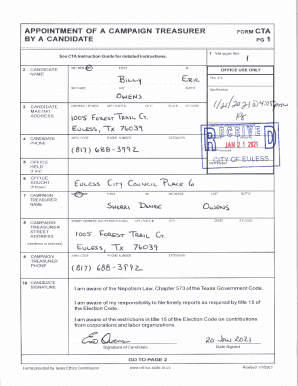 APPOINTMENT OF A CAMPAIGN TREASURER BY A CANDIDATE
FORM CTA
PG 1
See CTA Instruction Guide for detailed instructions.
1 Total pages filed:
1
2 CANDIDATE NAME
MS / MRS / MR FIRST MI
Billy Eric
NICKNAME LAST SUFFIX
Owens
OFFICE USE ONLY
Date Received
1/21/2021 @ 4:05pm
3 CANDIDATE MAILING ADDRESS
1005 Forest Trail Ct.
Euless, TX 76039
RECEIVED
JAN 21 2021
CITY OF EULESS
4 CANDIDATE PHONE
AREA CODE PHONE NUMBER EXTENSION
(817) 688-3992
5 OFFICE HELD
(if any)
6 OFFICE SOUGHT
(if known)
Euless City Council Place 6
7 CAMPAIGN TREASURER NAME
MS / MRS / MR FIRST MI NICKNAME LAST SUFFIX
Sherri Owens
8 CAMPAIGN TREASURER STREET ADDRESS
(residence or business)
1005 Forest Trail Ct.
Euless, TX 76039
9 CAMPAIGN TREASURER PHONE
AREA CODE PHONE NUMBER EXTENSION
(817) 688-3992
10 CANDIDATE SIGNATURE
I am aware of the Nepotism Law, Chapter 573 of the Texas Government Code.
I am aware of my responsibility to file timely reports as required by title 15 of the Election Code.
I am aware of the restrictions in title 15 of the Election Code on contributions from corporations and labor organizations.
20 Jan 2021
Signature of Candidate
Date Signed
GO TO PAGE 2
Forms provided by Texas Ethics Commission
www.ethics.state.tx.us
Revised 1/1/2021